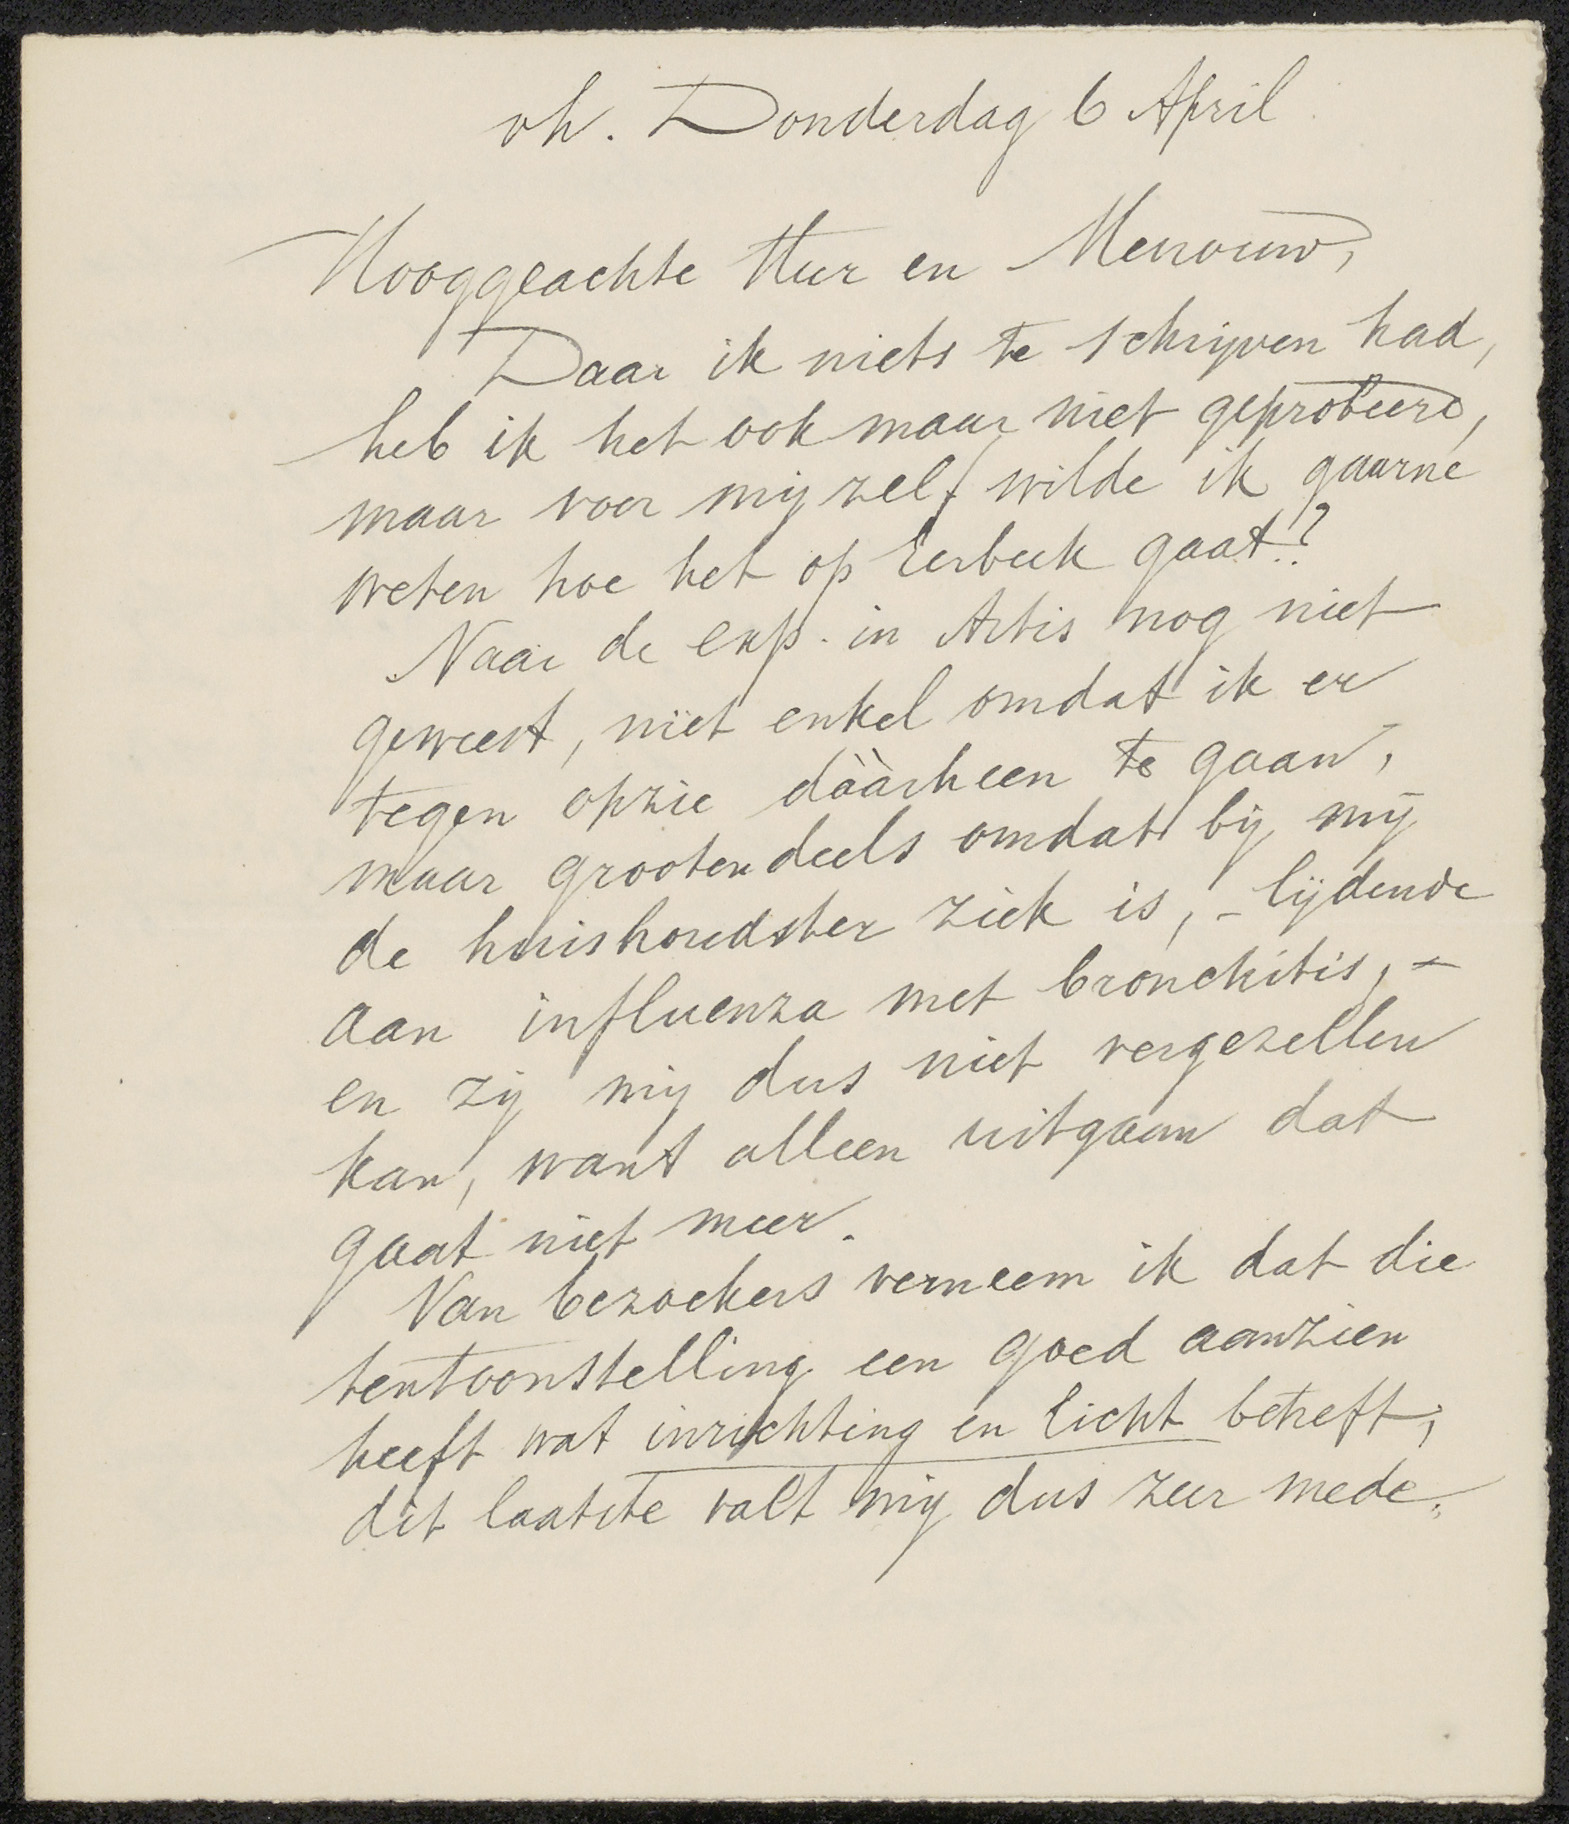 vh. Donderdag 6 April
Hooggeachte Heer en Mevrouw,
Daar ik niets te schrijven had,
heb ik het ook maar niet geprobeerd,
maar voor mijzelf wilde ik gaarne
weten hoe het op Eerbeek gaat?
Naar de exp. in Artis nog niet
geweest, niet enkel omdat ik er
tegen opzie dààrheen te gaan,
maar grootendeels omdat bij mij
de huishoudster ziek is, – lijdende
aan influenza met bronchitis, –
en zij mij dus niet vergezellen
kan, want alleen uitgaan dat
gaat niet meer.
Van bezoekers verneem ik dat die
tentoonstelling een goed aanzien
heeft wat inrichting en licht betreft,
dit laatste valt mij dus zeer mede.